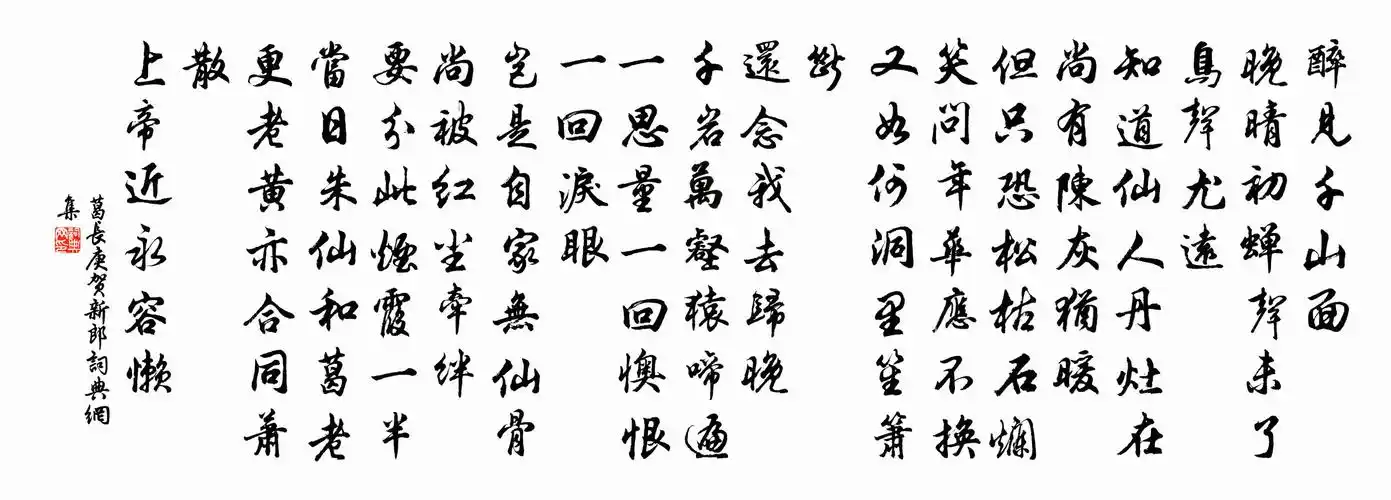 醉見千山面
晚晴初蝉聲未了
鳥聲尤遠
知道仙人丹灶在
尚有陳灰猶暖
但只恐松枯石爛
笑問年華應不換
又如何洞里笙簫
斷
還念我去歸晚
千岩萬壑猿啼遍
一思量一回懊恨
一回淚眼
豈是自家無仙骨
尚被红尘牽绊
要分此煙霞一半
當日朱仙和葛老
更老黄亦合同蕭
散
上帝近永容懒
葛長庚賀新郎詞典網
集